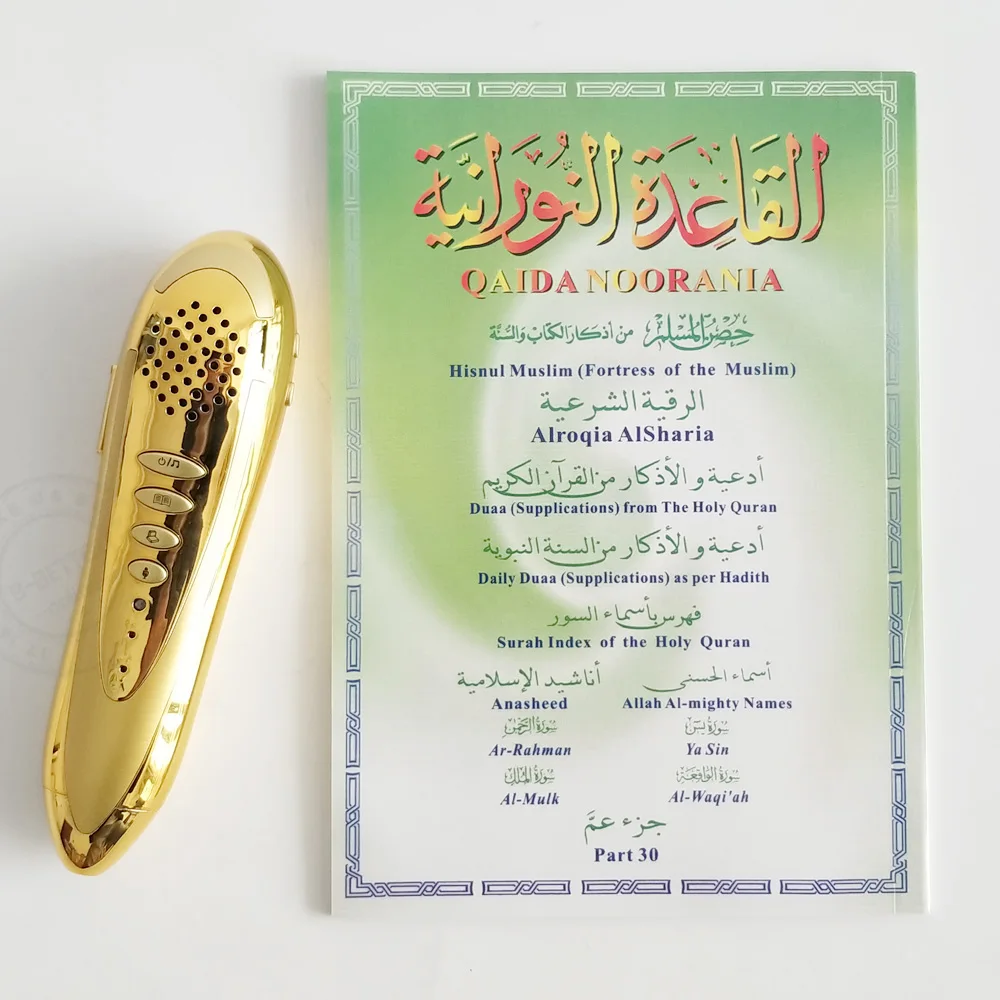 القَاعِدَة النُّورَانِيَّة
QAIDA NOORANIA
حِصْنُ المُسْلِم من أذكار الكتاب والسُّنَّة
Hisnul Muslim (Fortress of the Muslim)
الرقية الشرعية
Alroqia AlSharia
أدعية و الأذكار من القرآن الكريم
Duaa (Supplications) from The Holy Quran
أدعية و الأذكار من السنة النبوية
Daily Duaa (Supplications) as per Hadith
فهرس بأسماء السور
Surah Index of the Holy Quran
أناشيد الإسلامية أسماء الحسنى
Anasheed Allah Al-mighty Names
سورة الرحمن سورة يس
Ar-Rahman Ya Sin
سورة الملك سورة الواقعة
Al-Mulk Al-Waqi'ah
جزء عمَّ
Part 30